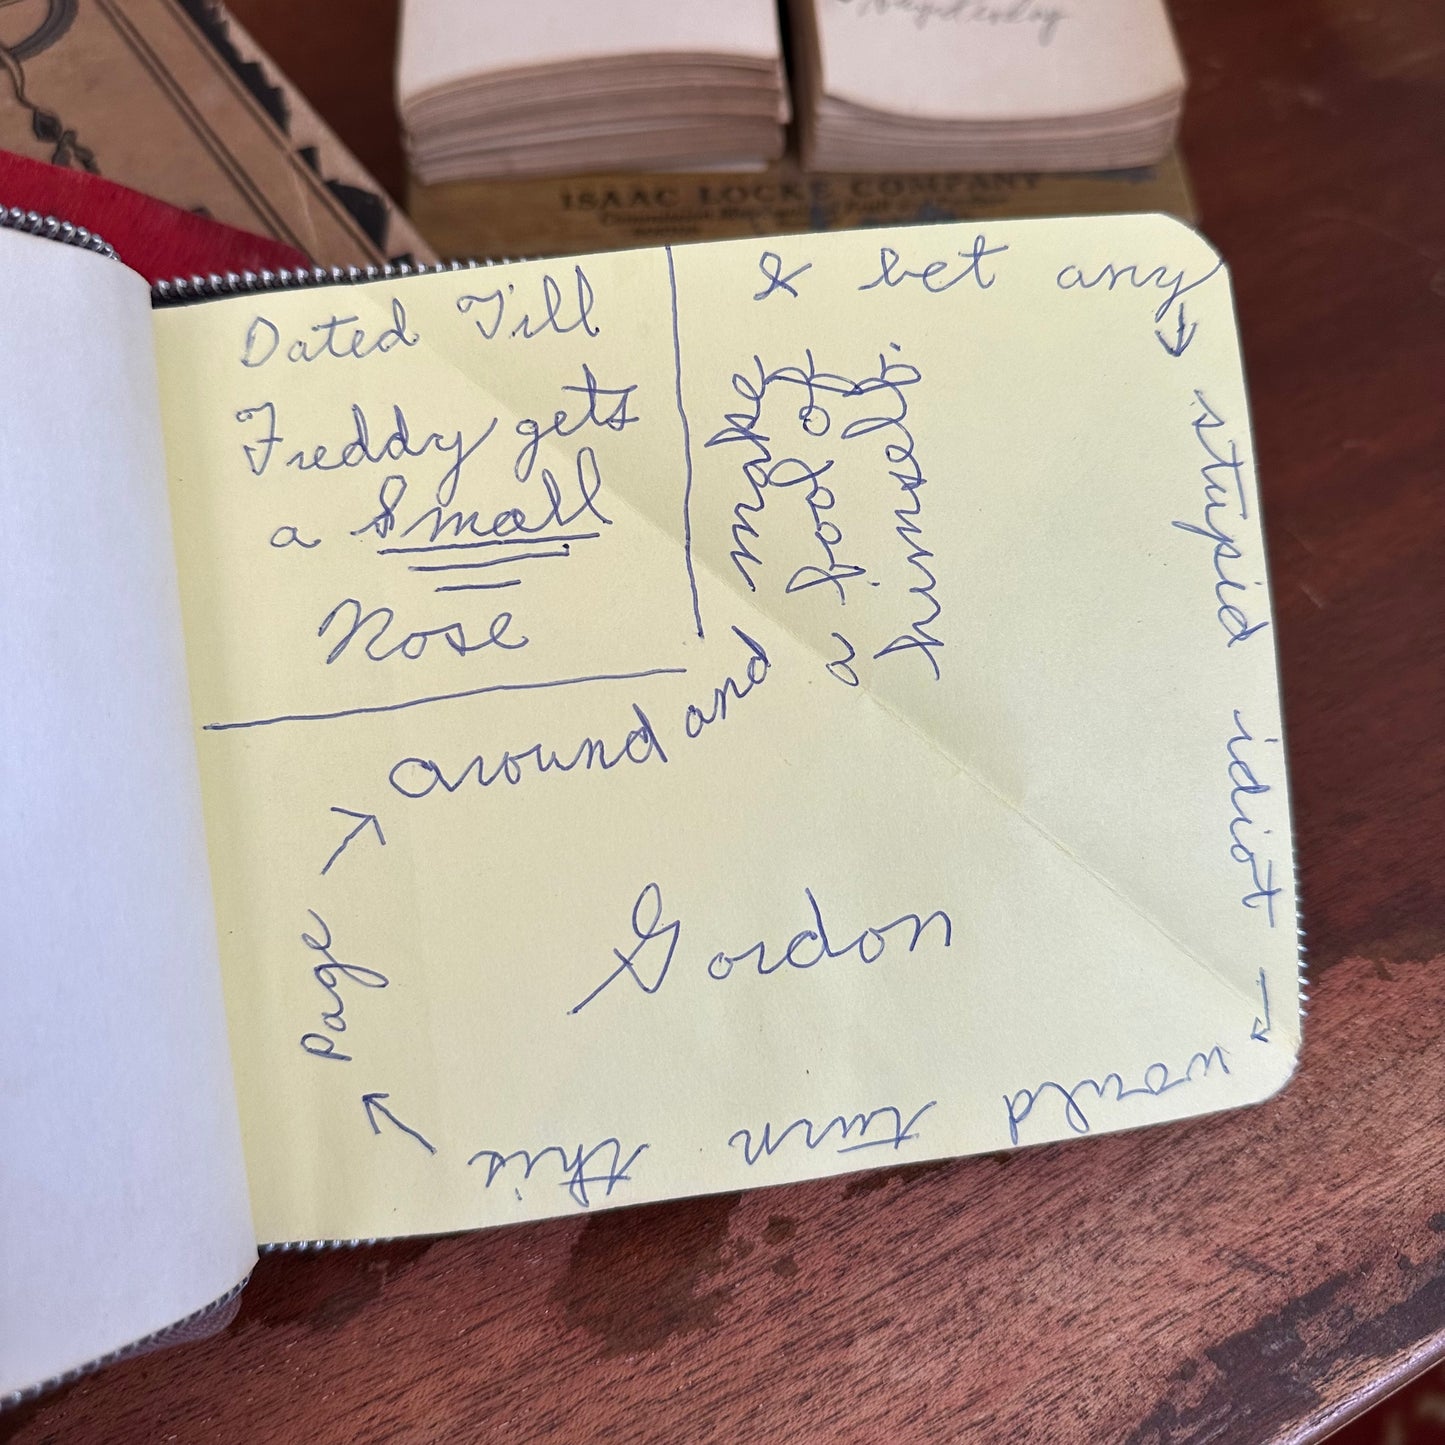 ISAAC LOCKE COMPANY
Dated Till
Freddy gets
a Small
Nose
I bet any
stupid
idiot
would turn this
page
around and
make
a fool of
himself.
Gordon